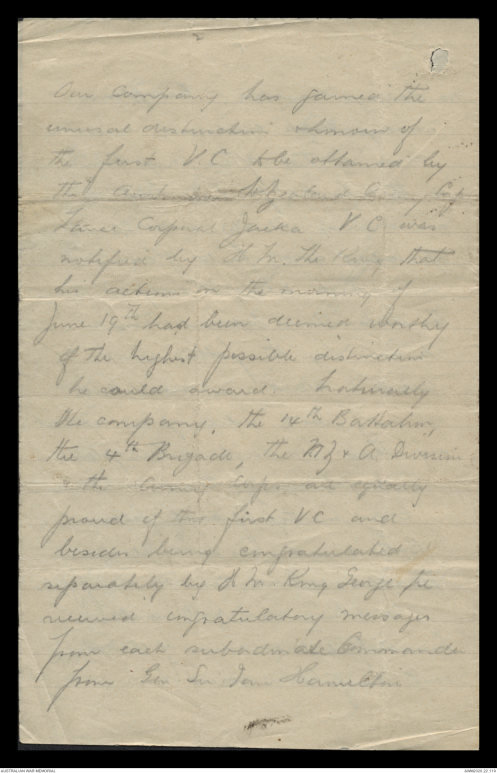 2
Our Company has gained the
unusual distinction & honour of
the first V.C to be attained by
the Army Corp
Lance Corporal Jacka V.C. was
notified by H.M. The King that
his actions on the morning of
June 19th had been deemed worthy
of the highest possible distinction
he could award. Naturally
the company, the 14th Battalion,
the 4th Brigade, the NZ & A Division
& the Army Corps are equally
proud of this first VC and
besides being congratulated
separately by H.M. King George he
received congratulatory messages
from each subordinate Commander
from Gen Sir Ian Hamilton
AUSTRALIAN WAR MEMORIAL